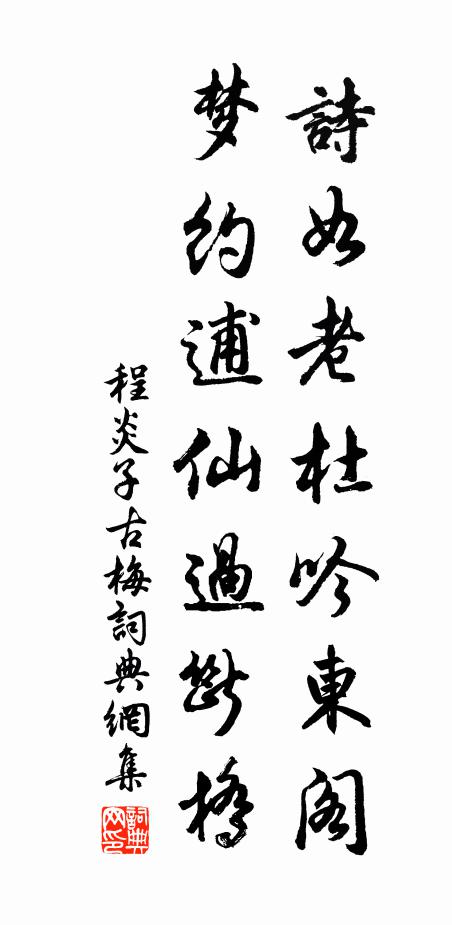 詩如老杜吟東阁
梦约逋仙過斷橋
程炎子古梅詞典網集
詞典網印